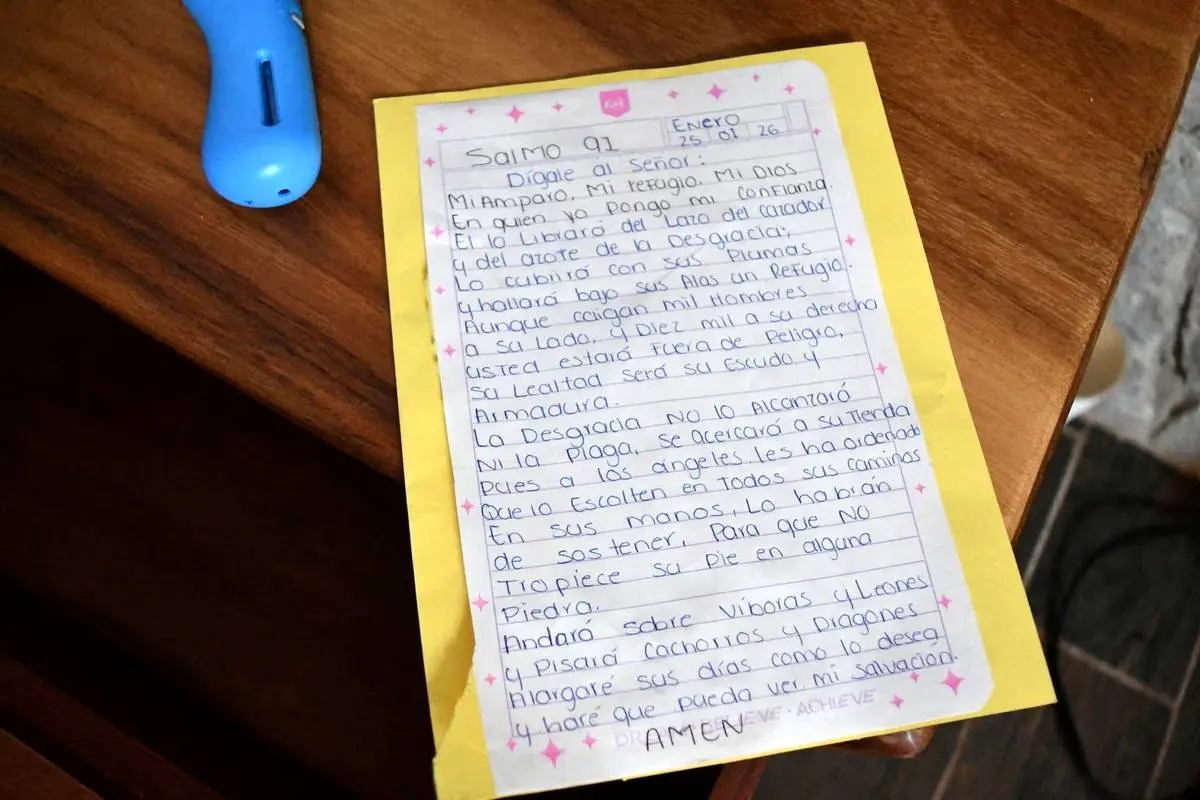 KM
Enero
25 01 26
Salmo 91
Dígale al Señor:
Mi Amparo, Mi refugio, Mi Dios
En quien yo Pongo mi confianza.
El lo Librará del Lazo del cazador
y del azote de la Desgracia;
Lo cubrirá con sus Plumas
y hallará bajo sus Alas un Refugio.
Aunque caigan mil Hombres
a su Lado, y Diez mil a su derecha
usted estará Fuera de Peligro,
su Lealtad será su Escudo y
Armadura.
La Desgracia No lo Alcanzará
Ni la Plaga, se acercará a su Tienda
pues a los ángeles les ha ordenado
Que lo Escolten en Todos sus caminos
En sus manos, Lo habrán
de sostener, Para que No
Tropiece su Pie en alguna
Piedra.
Andará sobre Víboras y Leones
y Pisará cachorros y Dragones
Alargaré sus días como lo desea
y haré que pueda ver mi salvación.
AMEN
ACHIEVE